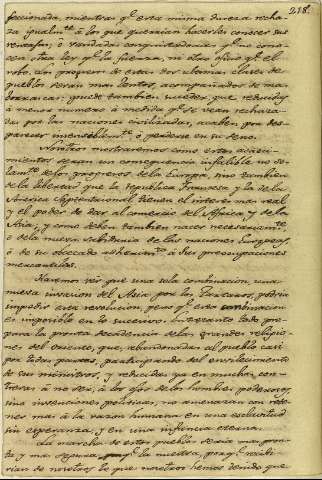 218.
feccionada, mientras q.e esta misma dureza recha-
za igualm.te á los que querrian hacerles conocer sus
ventajas; ó bandadas conquistadoras q.e no cono-
cen otra ley q.e la fuerza, ni otro oficio q.e el
robo. Los progresos de estas dos ultimas clases de
pueblos seran mas lentos, acompañados de mas
borrascas; puede tambien suceder, que reducidos
á menor numero á medida q.e se vean rechaza-
dos por las naciones civilizadas, acaben por des-
parecer insensiblem.te ó perderse en su seno.
Nosotros mostraremos como estos aconte-
cimientos seran una consequencia infalible no so-
lam.te de los progresos de la Europa, sino tambien
de la libertad que la republica francesa y la de la
America Septentrional tienen el interes mas real
y el poder de dar al comercio del Africa y de la
Asia, y como deben tambien nacer necesariam.te
ó de la nueva sabiduria de las naciones Europeas,
ó de su obcecada adhesion á sus preocupaciones
mercantiles.
Haremos ver que una sola combinacion, una
nueva invasion del Asia por los Tartaros, podria
impedir esta revolucion, pero q.e esta combinacion
es imposible en lo succesivo. Entretanto todo pre-
para la pronta decadencia de las grandes religio-
nes del oriente, que, abandonadas al pueblo casi
por todas partes, participando del envilecimiento
de sus ministros, y reducidas ya en muchas con-
treras á no ser, á los ojos de los hombres poderosos,
sino invenciones politicas, no amenazan con rete-
ner mas á la razon humana en una esclavitud
sin esperanza, y en una infancia eterna.
La marcha de estos pueblos seria mas pron-
ta y mas segura q.e la nuestra, porq.e recibi-
rian de nosotros lo que nosotros hemos tenido que